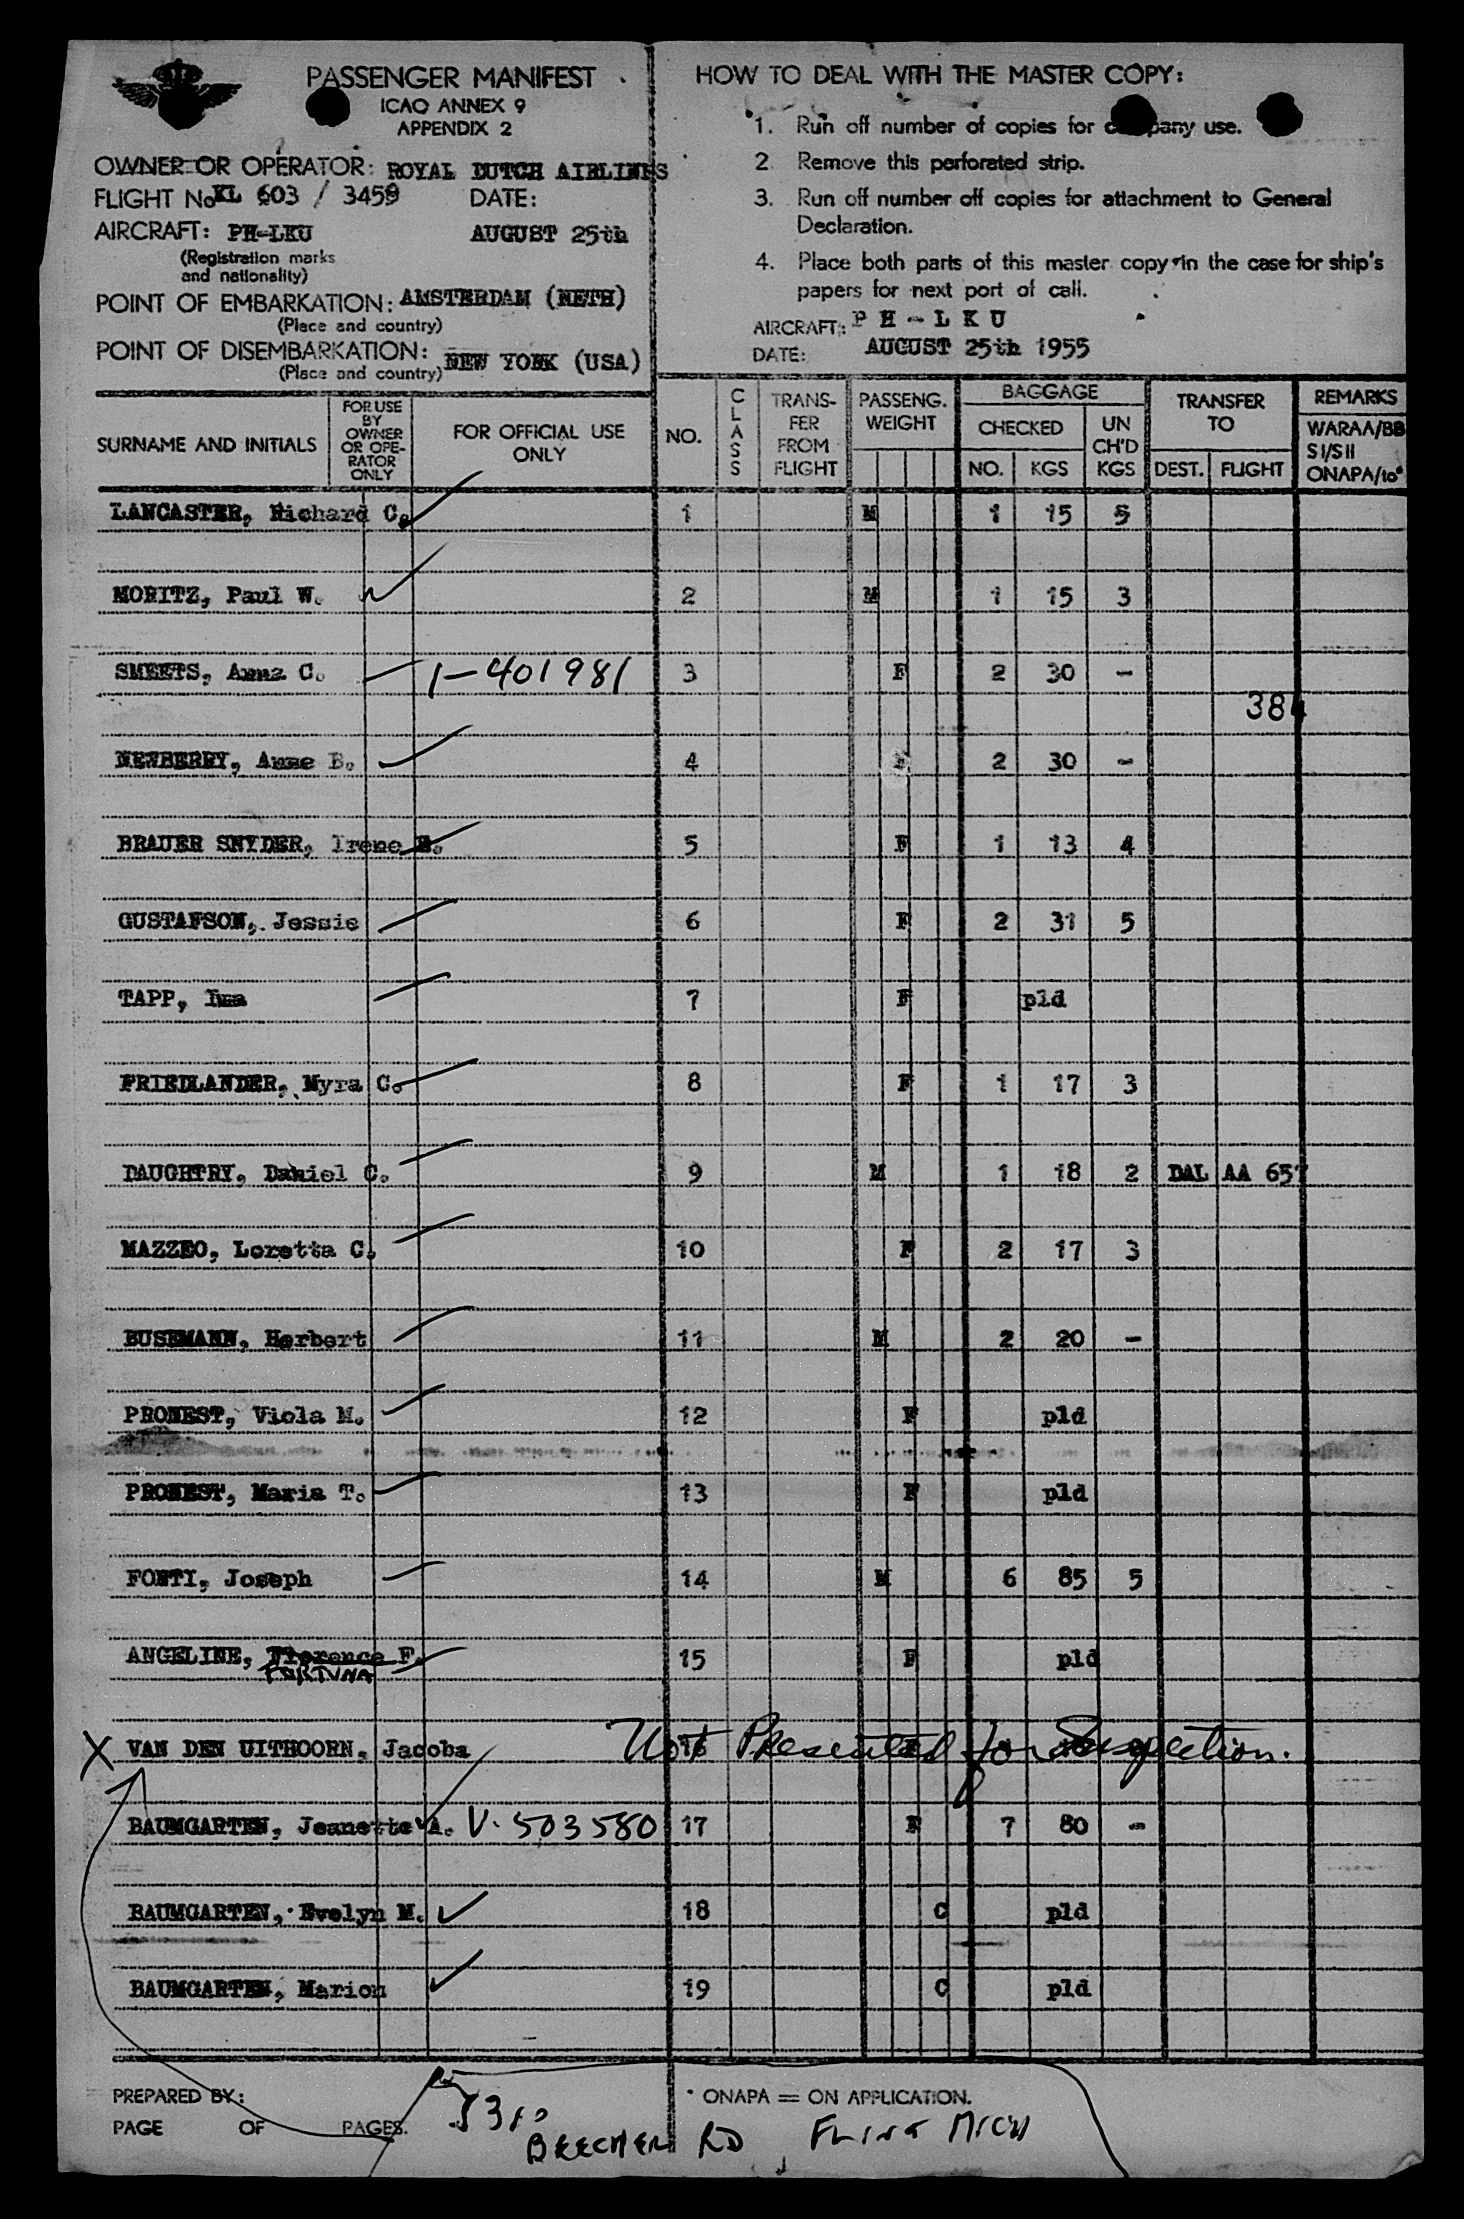 PASSENGER MANIFEST
ICAO ANNEX 9
APPENDIX 2
OWNER OR OPERATOR: ROYAL DUTCH AIRLINES
FLIGHT No KL 603 / 3459 DATE:
AIRCRAFT: PH-LKU AUGUST 25th
(Registration marks
and nationality)
POINT OF EMBARKATION: AMSTERDAM (NETH)
(Place and country)
POINT OF DISEMBARKATION: NEW YORK (USA)
(Place and country)
HOW TO DEAL WITH THE MASTER COPY:
1. Run off number of copies for company use.
2 Remove this perforated strip.
3. Run off number off copies for attachment to General
Declaration.
4. Place both parts of this master copy in the case for ship's
papers for next port of call.
AIRCRAFT: PH-LKU
DATE: AUGUST 25th 1955
SURNAME AND INITIALS
FOR USE
BY
OWNER
OR OPE-
RATOR
ONLY
FOR OFFICIAL USE
ONLY
NO.
CLASS
TRANS-
FER
FROM
FLIGHT
PASSENG.
WEIGHT
BAGGAGE
CHECKED
NO. KGS
UN
CH'D
KGS
TRANSFER
TO
DEST. FLIGHT
REMARKS
WARAA/BB
SI/SII
ONAPA/10*
LANCASTER, Richard C. 1 M 1 15 5
MORITZ, Paul W. 2 M 1 15 3
SMEETS, Anna C. 1-401981 3 F 2 30 -
384
NEWBERRY, Anne B. 4 F 2 30 -
BRAUER SNYDER, Irene E. 5 F 1 13 4
GUSTAFSON, Jessie 6 F 2 31 5
TAPP, Ima 7 F pld
FRIEDLANDER, Myra C. 8 F 1 17 3
DAUGHTRY, Daniel C. 9 M 1 18 2 DAL AA 657
MAZZEO, Loretta C. 10 F 2 17 3
BUSEMANN, Herbert 11 M 2 20 -
PRONEST, Viola M. 12 F pld
PRONEST, Maria T. 13 F pld
FONTI, Joseph 14 M 6 85 5
ANGELINE, Florence F. 15 F pld
FORTUNA
X VAN DEN UITHOORN, Jacoba 16 Not Presented for Inspection.
BAUMGARTEN, Jeanette A. V. 503580 17 F 7 80 -
BAUMGARTEN, Evelyn M. 18 C pld
BAUMGARTEN, Marion 19 C pld
PREPARED BY:
PAGE OF PAGES.
* ONAPA = ON APPLICATION.
BEECHER RD FLINT MICH